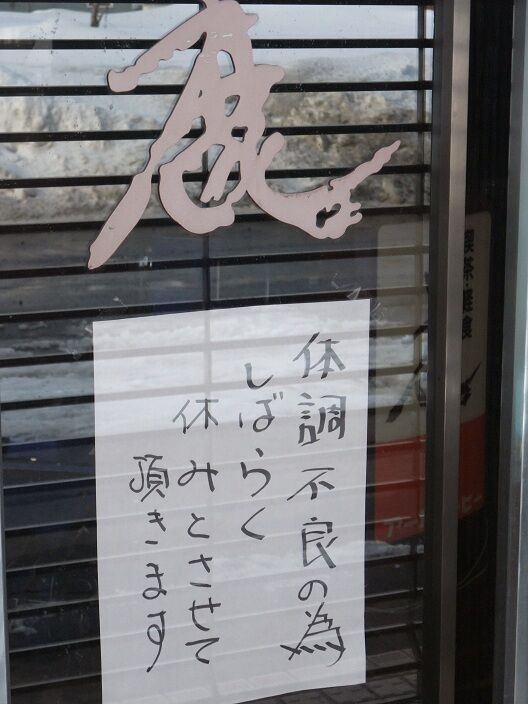 体調不良の為
しばらく
休みとさせて
頂きます